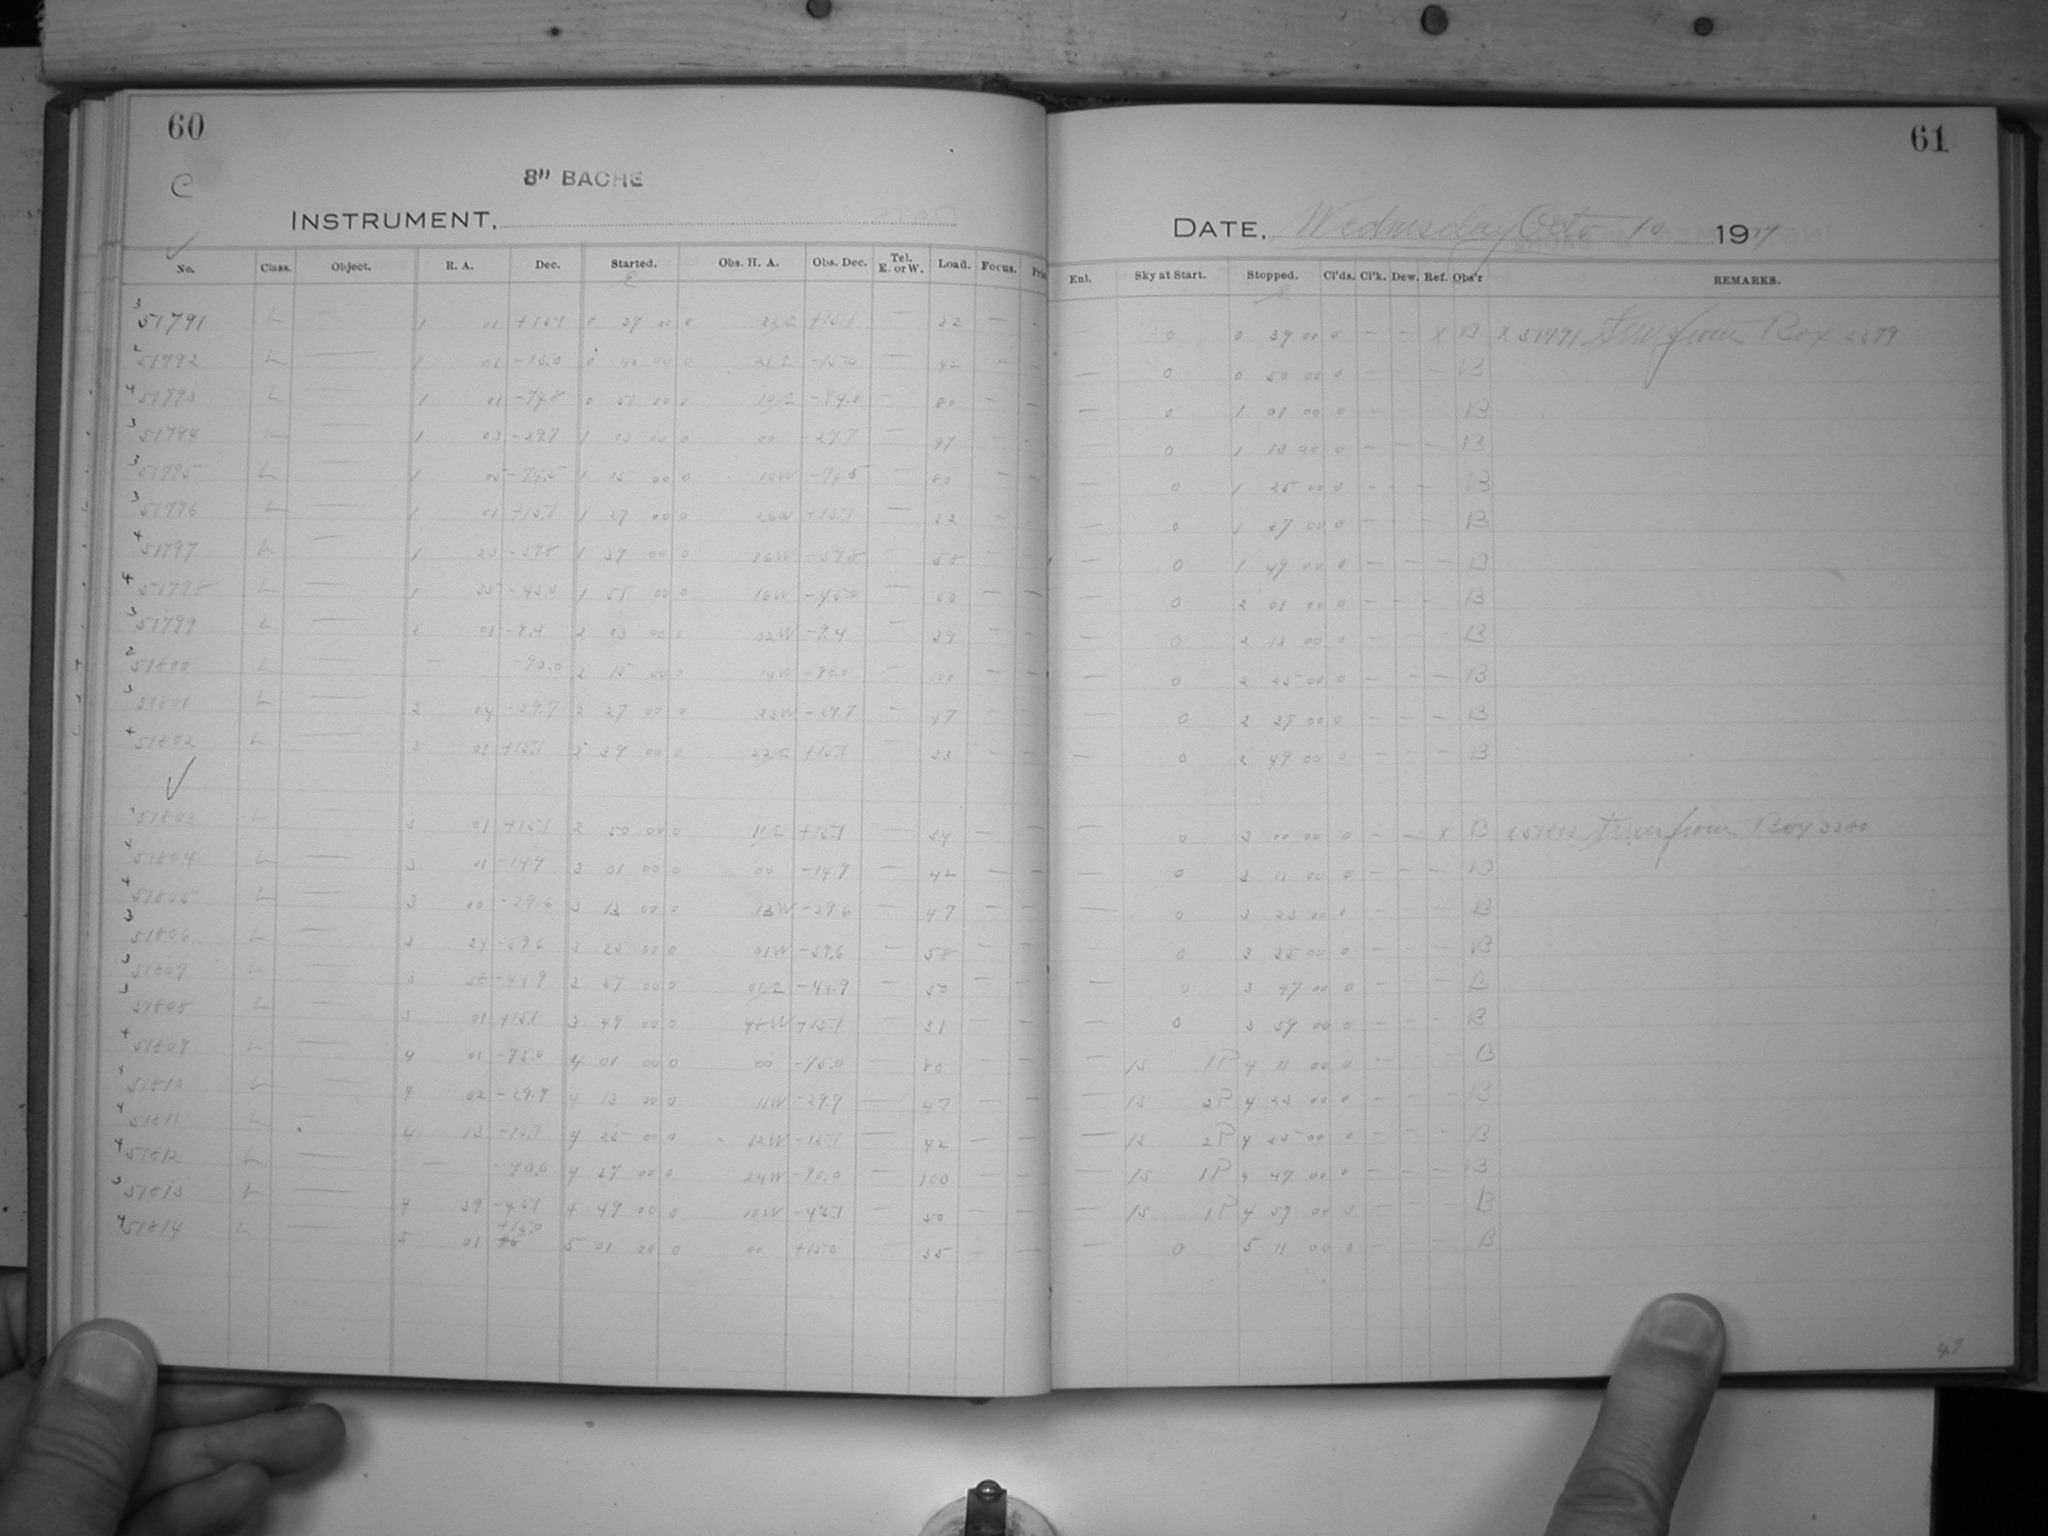 60
C
8" BACHE
INSTRUMENT,
No. Class. Object. R. A. Dec. Started. Obs. H. A. Obs. Dec. Tel. E. or W. Load. Focus.
3 51791 L — 1 01 +15.1 0 29 00 0 +15.1 — 32 — —
2 51792 L — 1 01 -15.0 0 40 00 0 21E -15.0 — 42 — —
4 51793 L — 1 01 -74.8 0 51 00 0 10E -74.8 — 80 — —
3 51794 L — 1 03 -29.7 1 03 00 0 00 -29.7 — 47 — —
3 51795 L — 1 05 -74.5 1 15 00 0 10W -74.5 — 80 — —
3 51796 L — 1 01 +15.1 1 27 00 0 26W +15.1 — — —
4 51797 L — 1 23 -59.8 1 39 00 0 16W -59.8 — 58 — —
4 51798 L — 1 35 -45.0 1 51 00 0 16W -45.0 — 50 — —
3 51799 L — 2 01 -9.4 2 03 00 0 02W -9.4 — 39 — —
2 51800 L — — -90.0 2 15 00 0 14W -90.0 — 100 — —
3 51801 L — 2 04 -29.7 2 27 00 0 23W -29.7 — 47 — —
4 51802 L — 3 01 +15.1 2 39 00 0 22E +15.1 — 33 — —
51803 L — 3 01 +15.1 2 50 00 0 11E +15.1 — 34 — —
51804 L — 3 01 -14.9 3 01 00 0 00 -14.9 — 42 — —
4 51805 L — 3 00 -29.6 3 13 00 0 13W -29.6 — 47 — —
3 51806 L — 3 24 -59.6 3 25 00 0 01W -59.6 — 58 — —
3 51807 L — 3 38 -44.9 3 37 00 0 01E -44.9 — 50 — —
3 51808 L — 3 01 +15.1 3 49 00 0 48W +15.1 — 31 — —
4 51809 L — 4 01 -75.0 4 01 00 0 00 -75.0 — 80 — —
51810 L — 4 02 -29.9 4 13 00 0 11W -29.9 — 47 — —
4 51811 L — 4 13 -15.1 4 25 00 0 12W -15.1 — 42 — —
4 51812 L — — -90.0 4 37 00 0 24W -90.0 — 100 — —
3 51813 L — 4 39 -45.1 4 49 00 0 10W -45.1 — 50 — —
4 51814 L — 5 01 +15.0 5 01 00 0 00 +15.0 — 35 — —
61
DATE, Wednesday Oct. 10 19
Enl. Sky at Start. Stopped. Cl'ds. Cl'k. Dew. Ref. Obs'r REMARKS.
— 0 0 39 00 0 — — x B x 51791 from Box
— 0 0 50 00 0 — — — B
— 0 1 01 00 0 — — — B
— 0 1 13 00 0 — — — B
— 0 1 25 00 0 — — — B
— 0 1 37 00 0 — — — B
— 0 1 49 00 0 — — — B
— 0 2 01 00 0 — — — B
— 0 2 13 00 0 — — — B
— 0 2 25 00 0 — — — B
— 0 2 37 00 0 — — — B
— 0 2 49 00 0 — — — B
— 0 3 00 00 0 — — x B x 51803 from Box
— 0 3 11 00 0 — — — B
— 0 3 23 00 0 — — — B
— 0 3 35 00 0 — — — B
— 0 3 47 00 0 — — — B
— 0 3 59 00 0 — — — B
— 15 1P 4 11 00 0 — — — B
— 15 2P 4 23 00 0 — — — B
— 15 2P 4 35 00 0 — — — B
— 15 1P 4 47 00 0 — — — B
— 15 1P 4 59 00 0 — — — B
— 0 5 11 00 0 — — — B